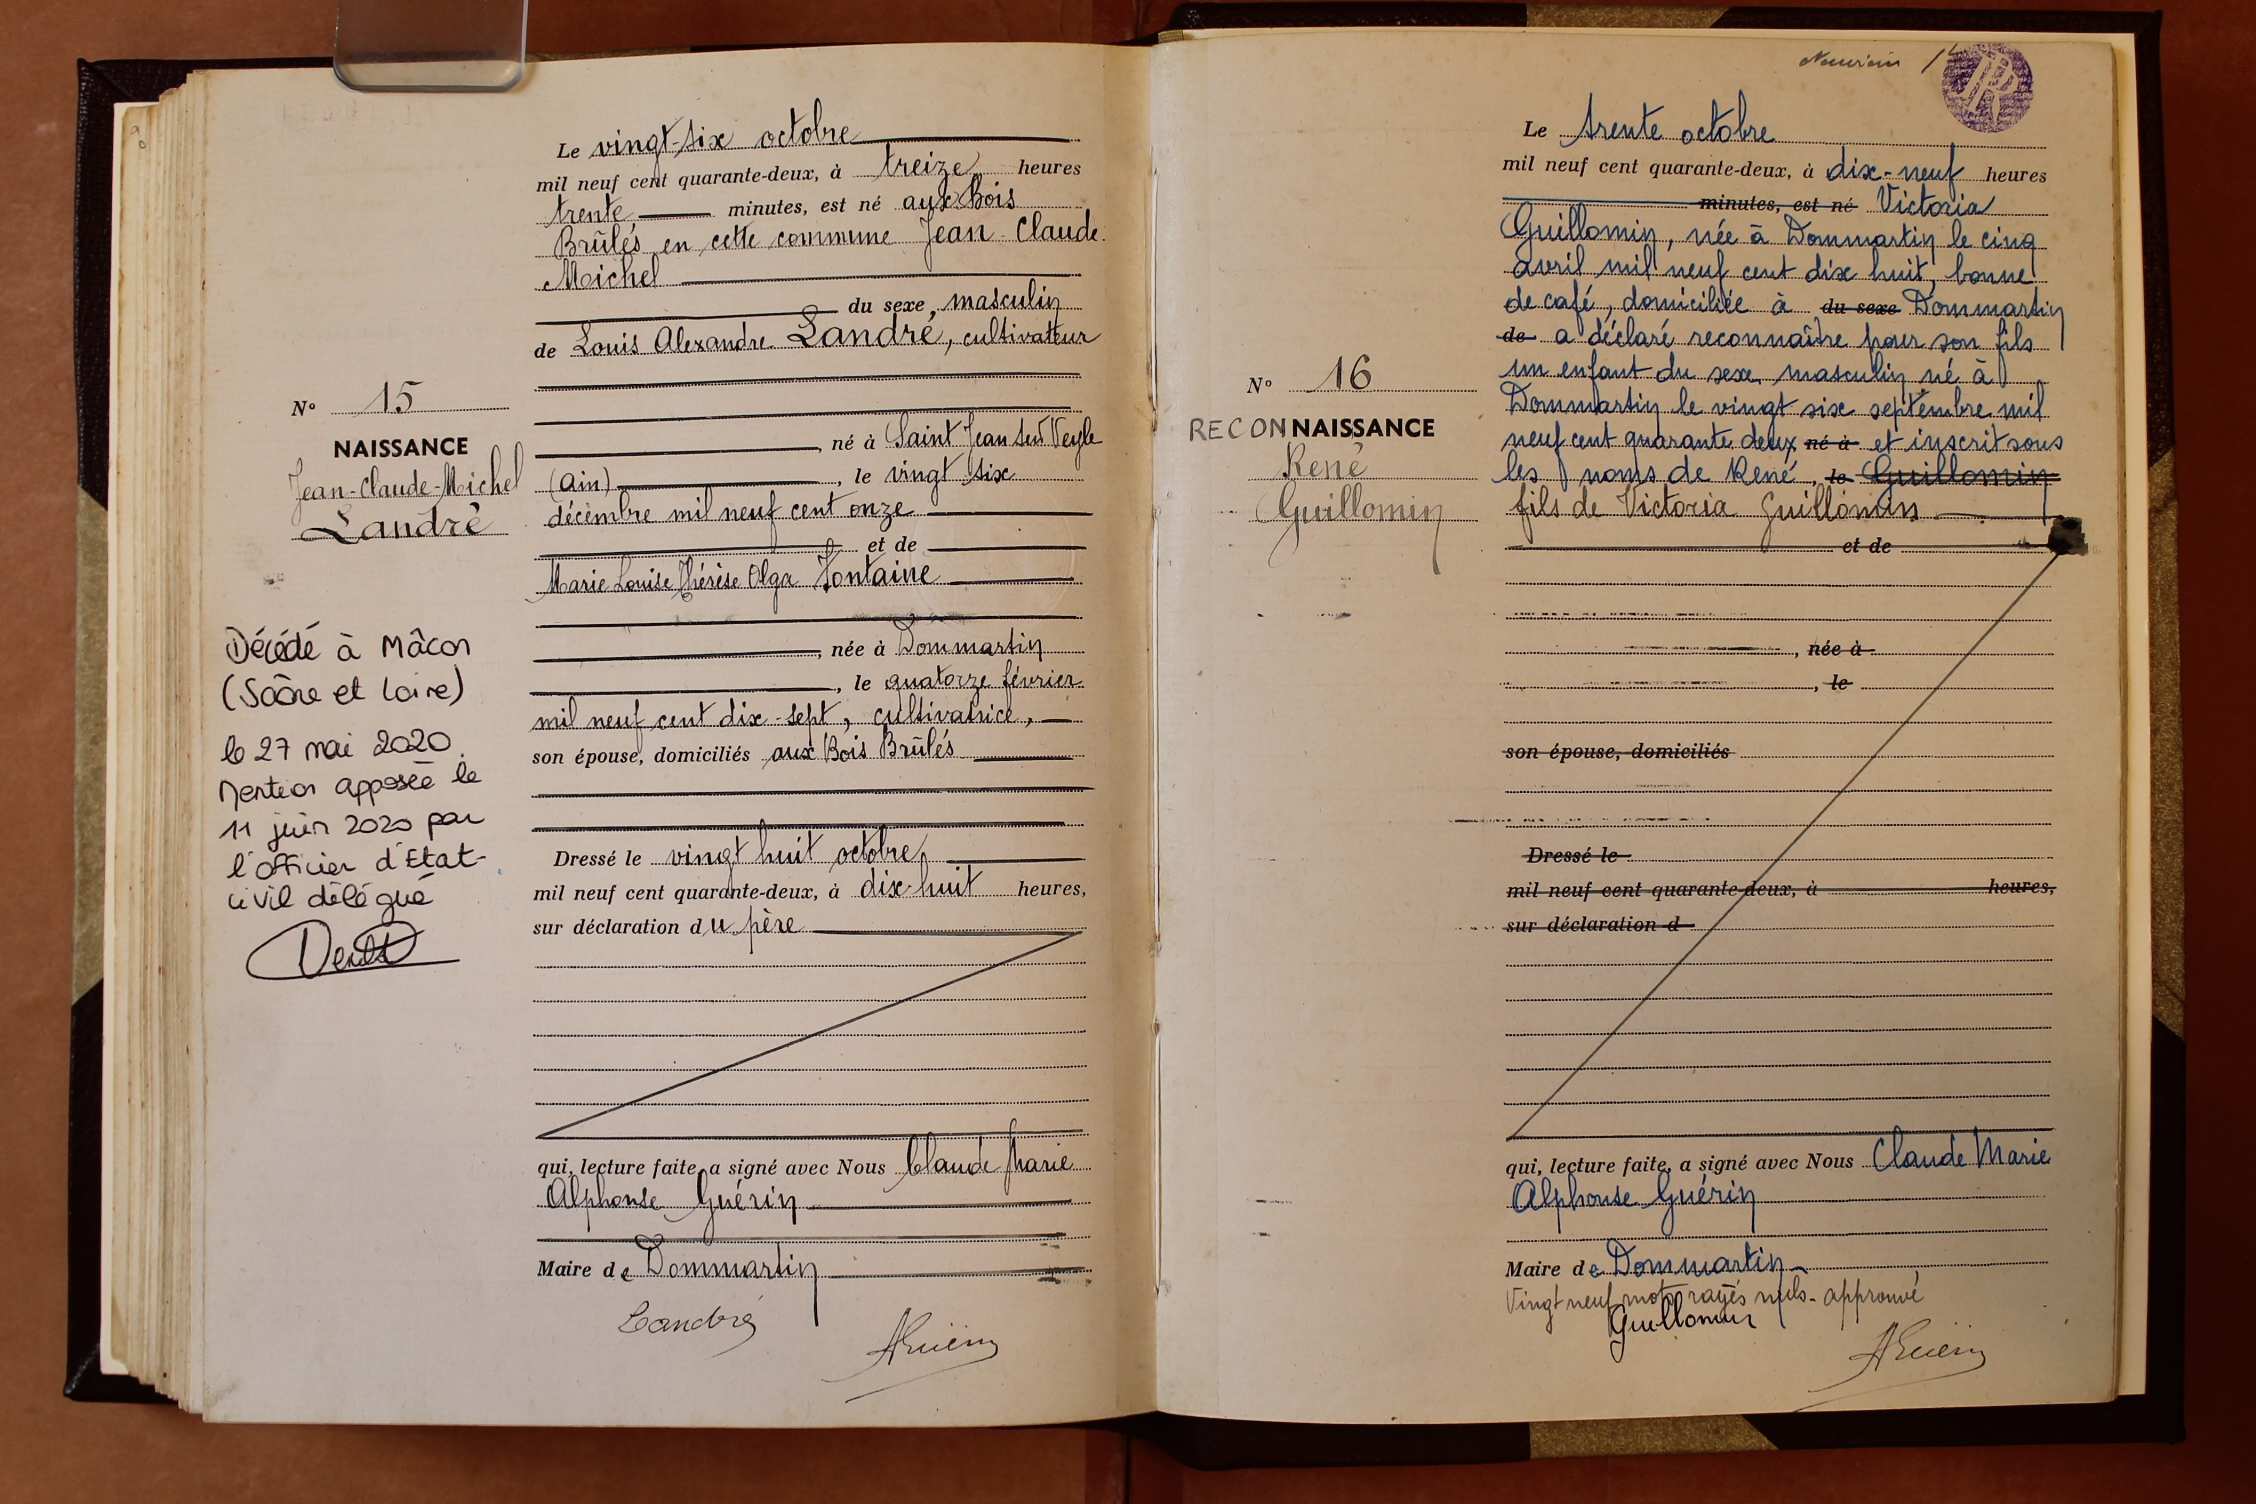 Le vingt-six octobre
mil neuf cent quarante-deux, à treize heures
trente minutes, est né aux Bois
Brûlés en cette commune Jean-Claude
Michel
du sexe, masculin
de Louis Alexandre Landré, cultivateur
, né à Saint Jean sur Veyle
(Ain) , le vingt six
décembre mil neuf cent onze
et de
Marie Louise Thérèse Olga Fontaine
, née à Dommartin
, le quatorze février
mil neuf cent dix-sept, cultivatrice,
son épouse, domiciliés aux Bois Brûlés
Dressé le vingt huit octobre
mil neuf cent quarante-deux, à dix-huit heures,
sur déclaration du père
qui, lecture faite, a signé avec Nous Claude Marie
Alphonse Guérin
Maire de Dommartin
Landré
AGuérin
N° 15
NAISSANCE
Jean-Claude-Michel
Landré
Décédé à Mâcon
(Saône et Loire)
le 27 mai 2020.
Mention apposée le
11 juin 2020 par
l'officier d'Etat-
civil délégué
Le trente octobre
mil neuf cent quarante-deux, à dix-neuf heures
minutes, est né Victoria
Guillomin, née à Dommartin le cinq
avril mil neuf cent dix huit, bonne
de café, domiciliée à du sexe Dommartin
de a déclaré reconnaître pour son fils
un enfant du sexe masculin né à
Dommartin le vingt six septembre mil
neuf cent quarante deux né à et inscrit sous
les noms de René, le Guillomin
fils de Victoria Guillomin
et de
, née à
, le
son épouse, domiciliés
Dressé le
mil neuf cent quarante-deux, à heures,
sur déclaration d
qui, lecture faite, a signé avec Nous Claude Marie
Alphonse Guérin
Maire de Dommartin
Vingt neuf mots rayés nuls - approuvé
Guillomin
AGuérin
N° 16
RECONNAISSANCE
René
Guillomin